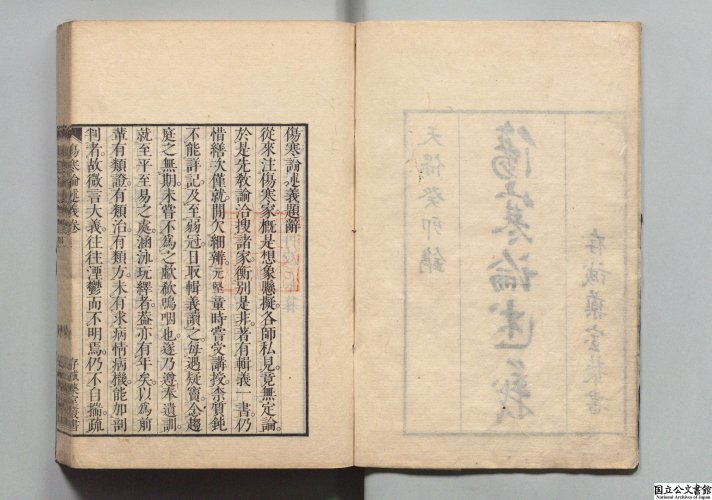 存誠藥室叢書
傷寒論述義
天保癸卯鐫
傷寒論述義題辭
從來注傷寒家概是想象懸擬各師私見竟無定論
於是先教諭洽搜諸家衡別是非著有輯義一書仍
惜繕次僅就閒欠細辨元堅童時嘗受講授柰質鈍
不能詳記及至弱冠日取輯義讀之每遇疑竇念趨
庭之無期未嘗不爲之歔欷嗚咽也遂乃遵奉遺訓
就至平至易之處涵泳玩繹者蓋亦有年矣以爲前
輩有類證有類治有類方未有求病情病機能加剖
判者故微言大義往往湮鬱而不明焉仍不自揣疏
傷寒論述義卷
存誠藥室叢書
国立公文書館
National Archives of Japan